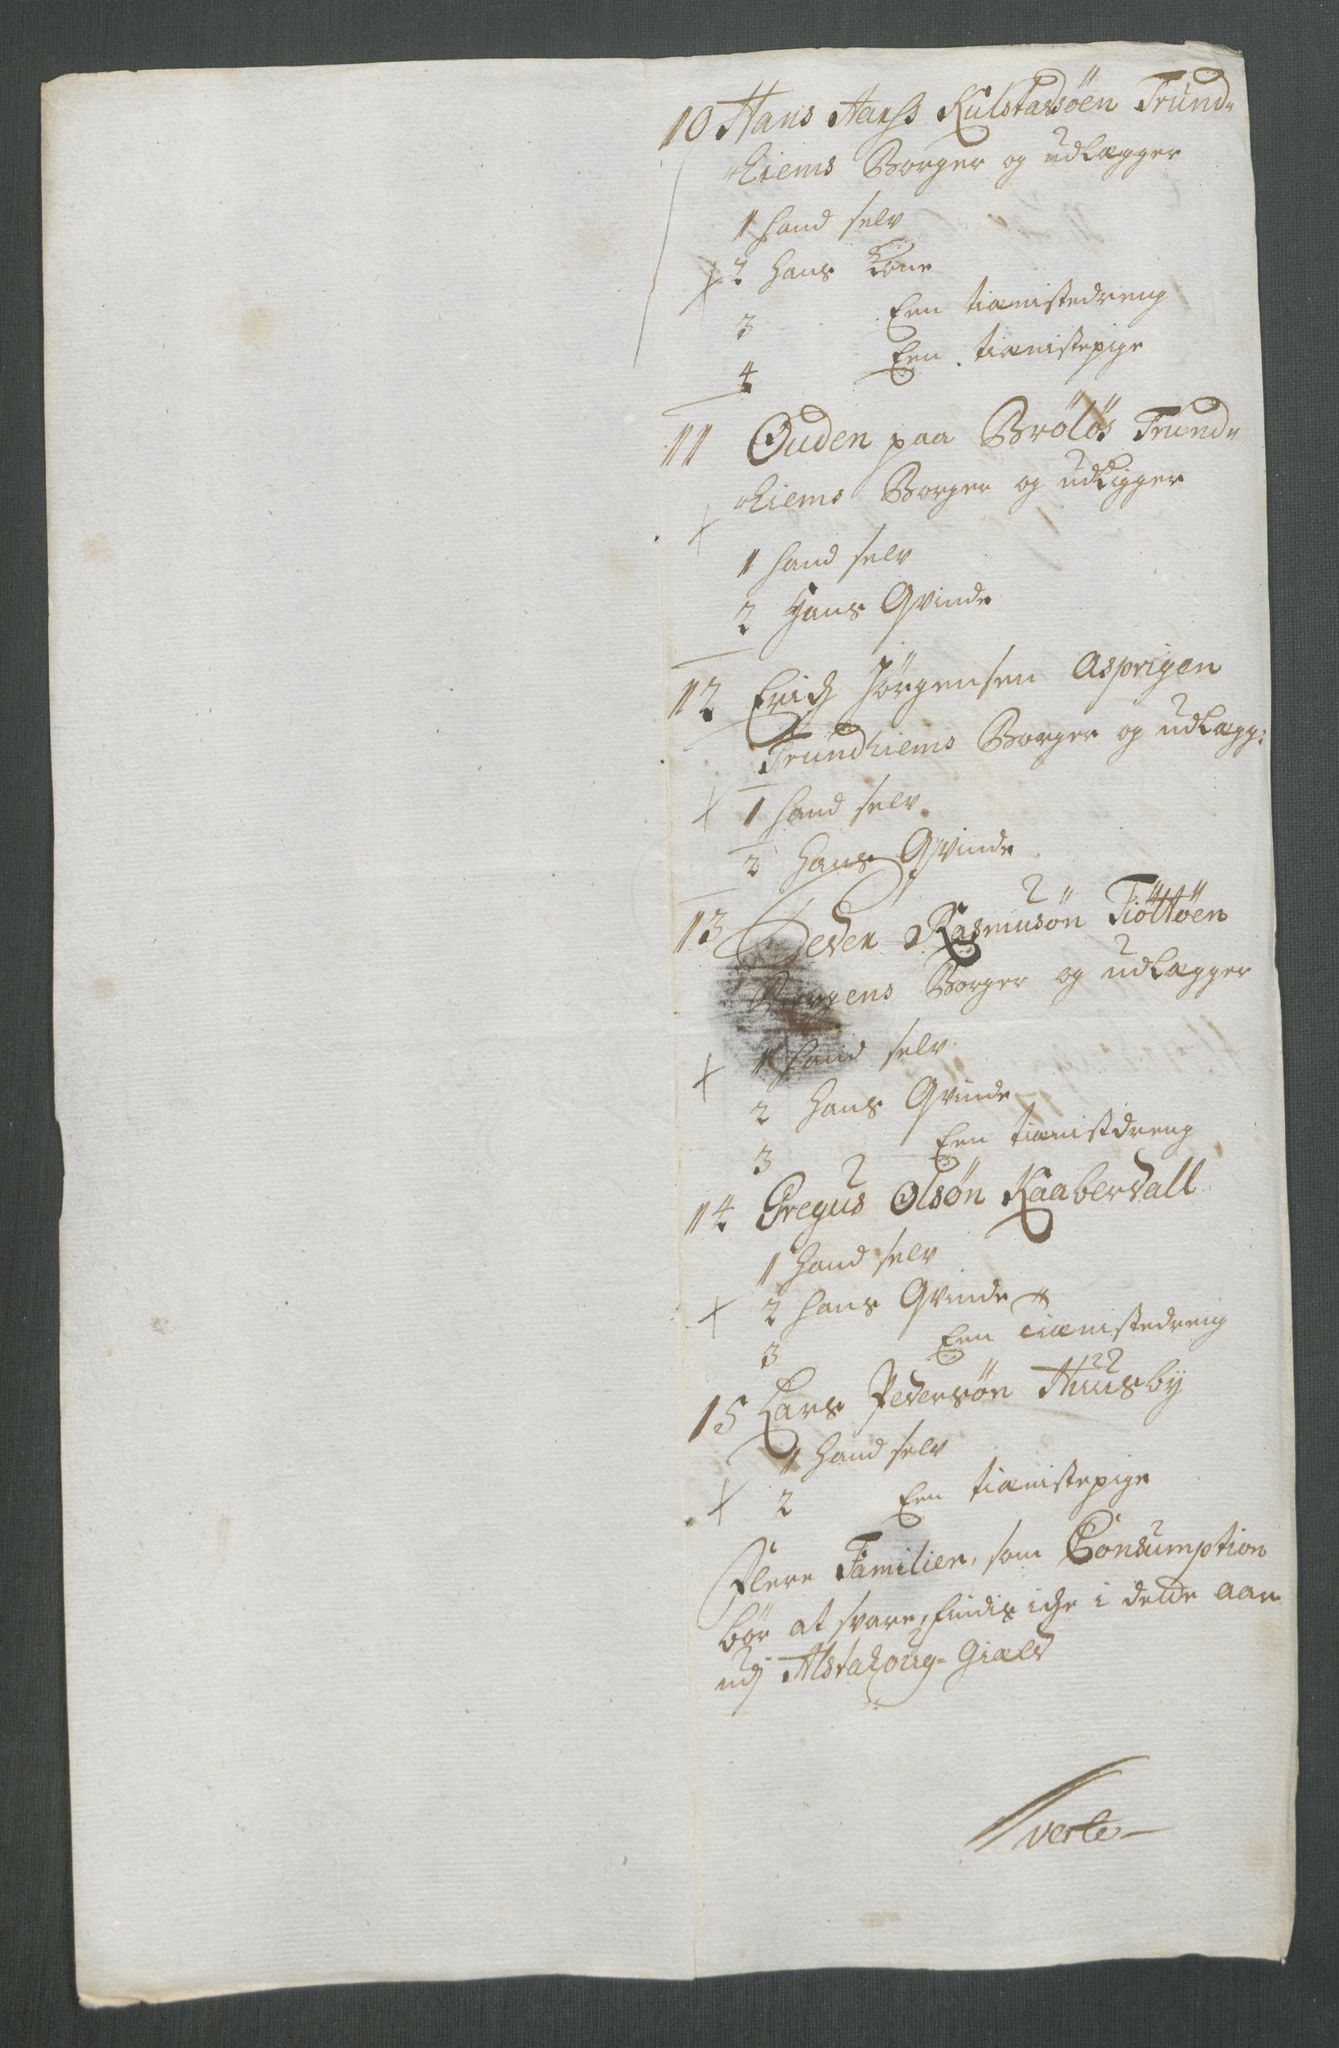 10 Hans Hanß Kulstadsöen Trund-
hiems Borger og udlegger
1 hand selv
2 hans Kone
3 Een tienistedreng
4 Een tienistepige
11 Ouden paa Brölös Trund-
hiems Borger og udligger
1 hand selv
2 Hans Qvinde
12 Erich Jörgensen Asprigen
Trundhiems Borger og udlegg:
1 hand selv
2 hans Qvinde
13 Peder Rasmusön Tiöttöen
Bergens Borger og udlegger
1 hand selv
2 hans Qvinde
3 Een tienistdreng
14 Gregus Olsön Kaaberdall
1 hand selv
2 hans Qvinde
3 Een tienistedreng
15 Lars Pedersön Huusby
1 hand selv
2 Een tienistepige
Flere Familier, som Consumption
bör at svare, findis iche i dette aar
udj Alstahoug-Gield
verte